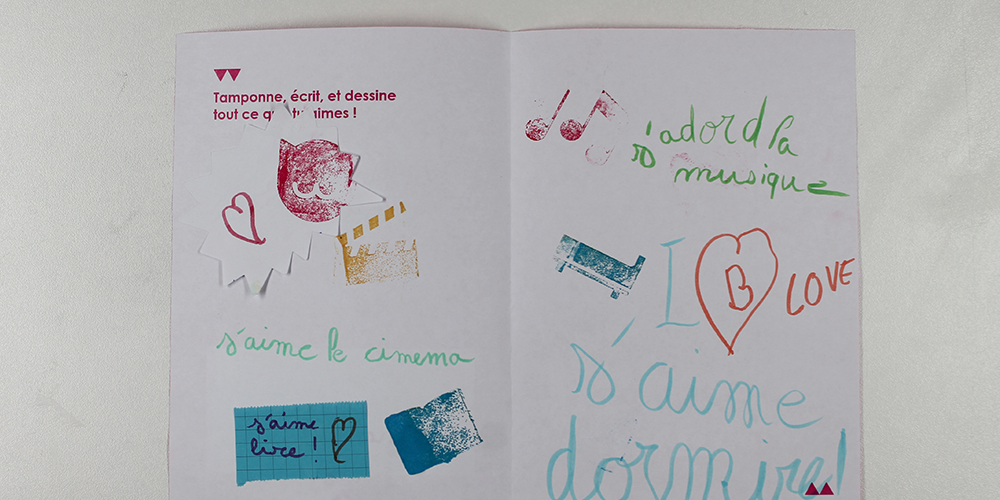 Tamponne, écrit, et dessine
tout ce que tu aimes !
s'aime le cinema
s'aime
lire !
s'adord la
musique
I B LOVE
s'aime
dormire!